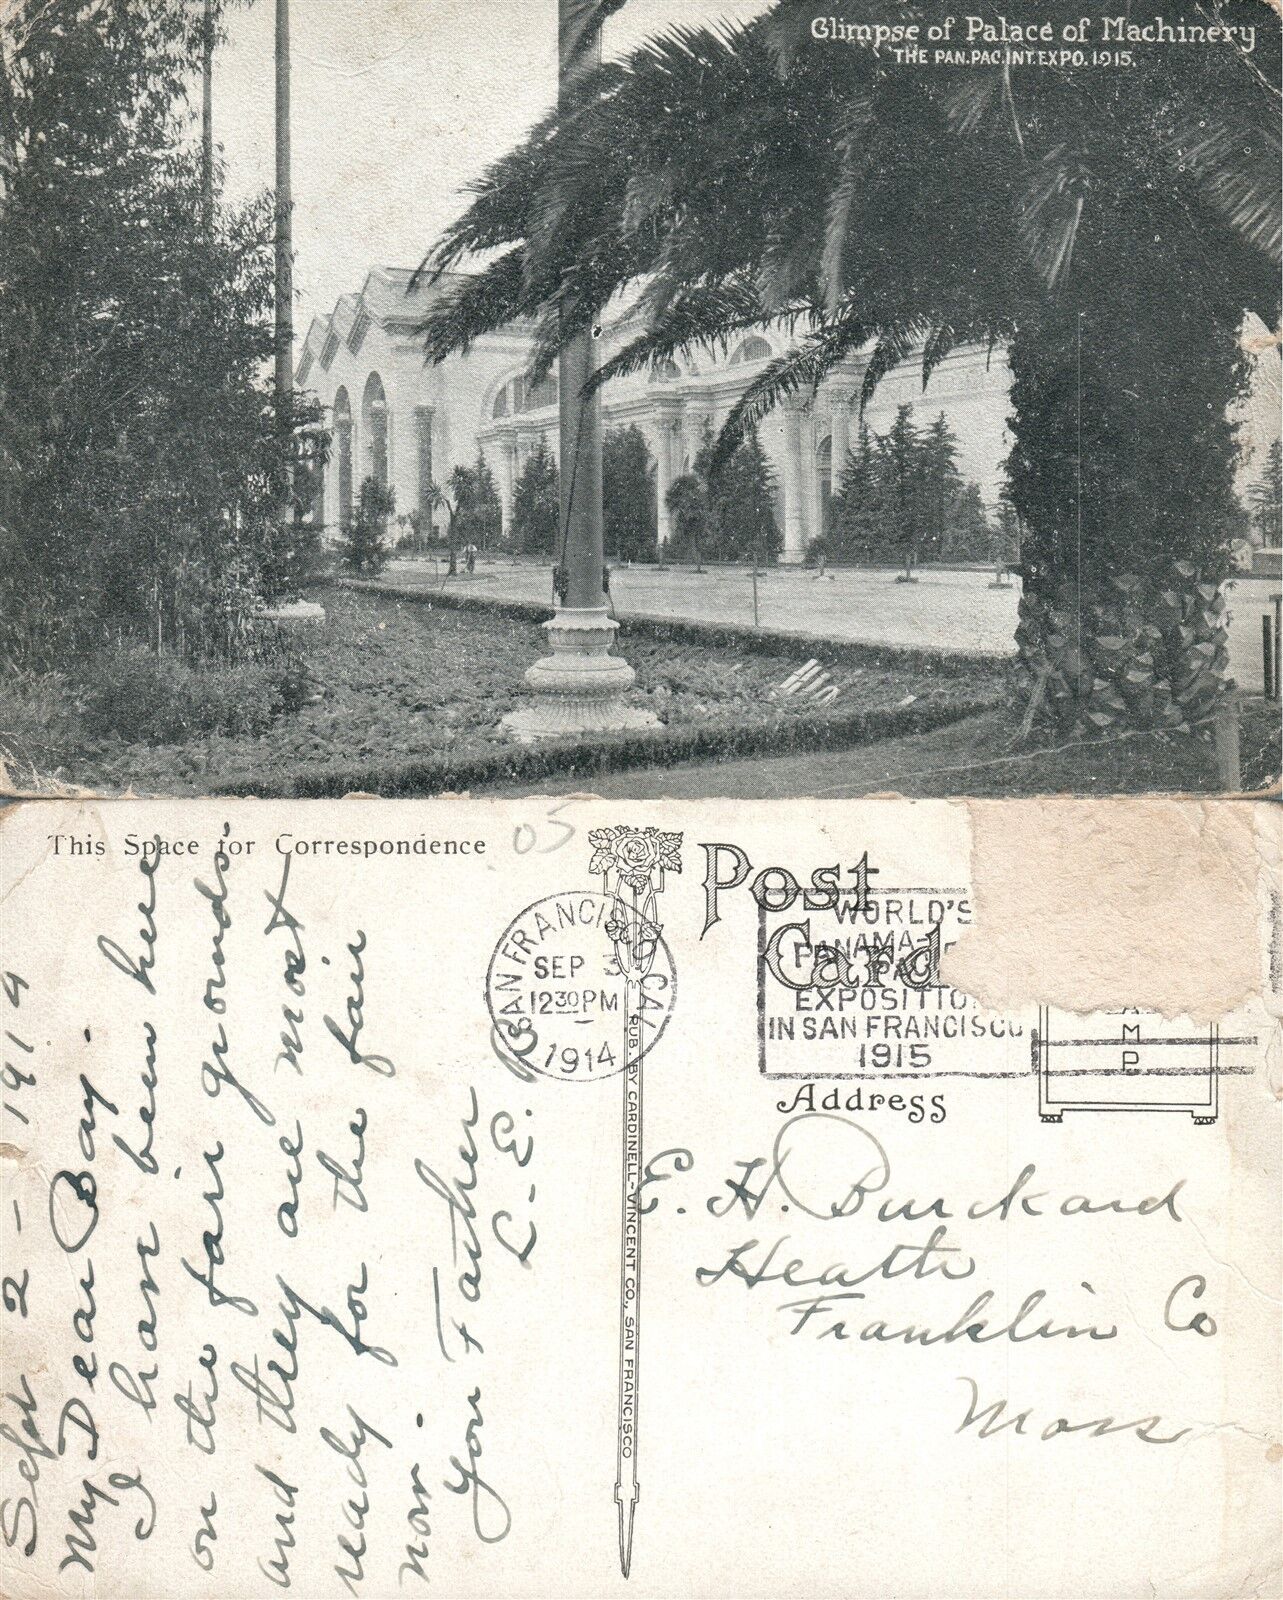 Glimpse of Palace of Machinery
THE PAN. PAC. INT. EXPO. 1915.
This Space for Correspondence
05
Post
Card
SAN FRANCISCO CAL.
SEP 3
12 30 PM
1914
WORLD'S
PANAMA-
PAC
EXPOSITIO
IN SAN FRANCISCO
1915
AMP
PUB. BY CARDINELL-VINCENT CO., SAN FRANCISCO
Address
E. H. Burckard
Heath
Franklin Co
Mass
Sept 2 - 1914
My Dear Boy.
I have been here
on the fair grounds
and they are most
ready for the fair
now.
Your Father
L-E. B